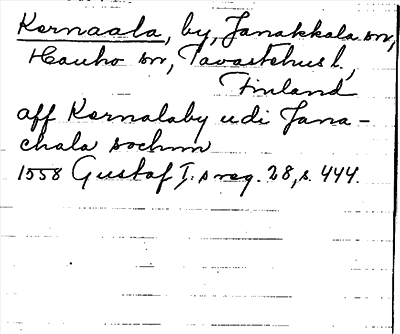 Kernaala, by, Janakkala sn,
Hauho sn, Tavastehus l.,
Finland
aff Kernalaby udi Jana-
chala sochnn
1558 Gustaf I:s reg. 28, s. 444.